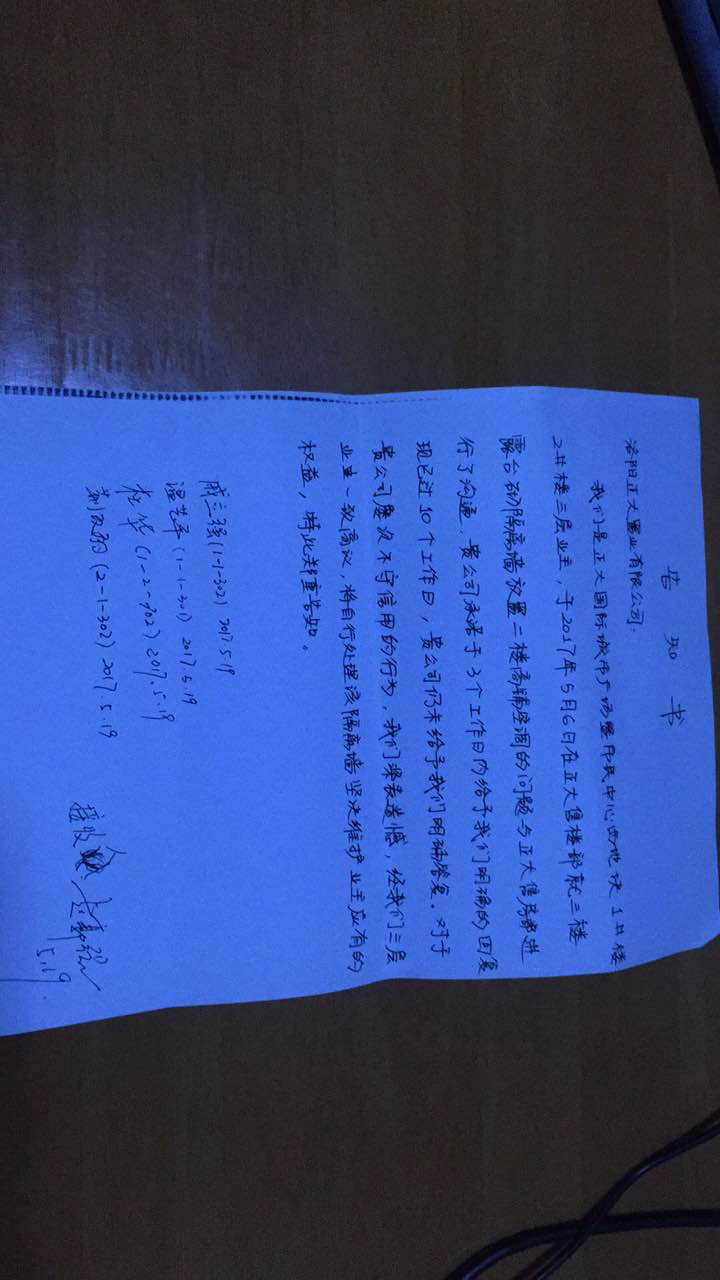 告知书
洛阳正大置业有限公司:
我们是正大国际城市广场暨市民中心西地块1#楼
2#楼三层业主,于2017年5月6日在正大售楼部就三楼
露台砌隔离墙放置二楼商铺空调的问题与正大售房部进
行了沟通,贵公司承诺于3个工作日内给予我们明确的回复
现已过10个工作日,贵公司仍未给予我们明确答复.对于
贵公司屡次不守信用的行为,我们深表遗憾,经我们三层
业主一致商议,将自行处理该隔离墙坚决维护业主应有的
权益,特此郑重告知。
(1-1-302) 2017.5.19
温 (1-1-301) 2017.5.19
杜华(1-2-302) 2017.5.19
(2-1-302) 2017.5.19
接收
5.19